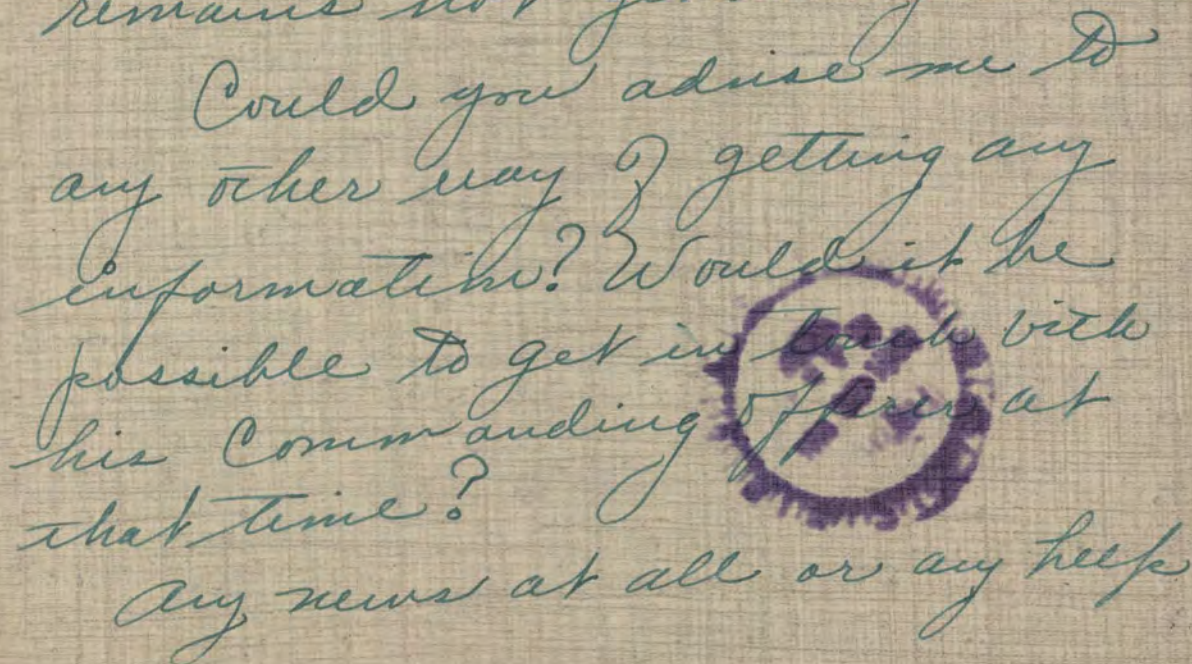 remains not
Could you advise me to
any other way of getting any
information? Would it be
possible to get in touch with
his Commanding Officer at
that time?
Any news at all or any help